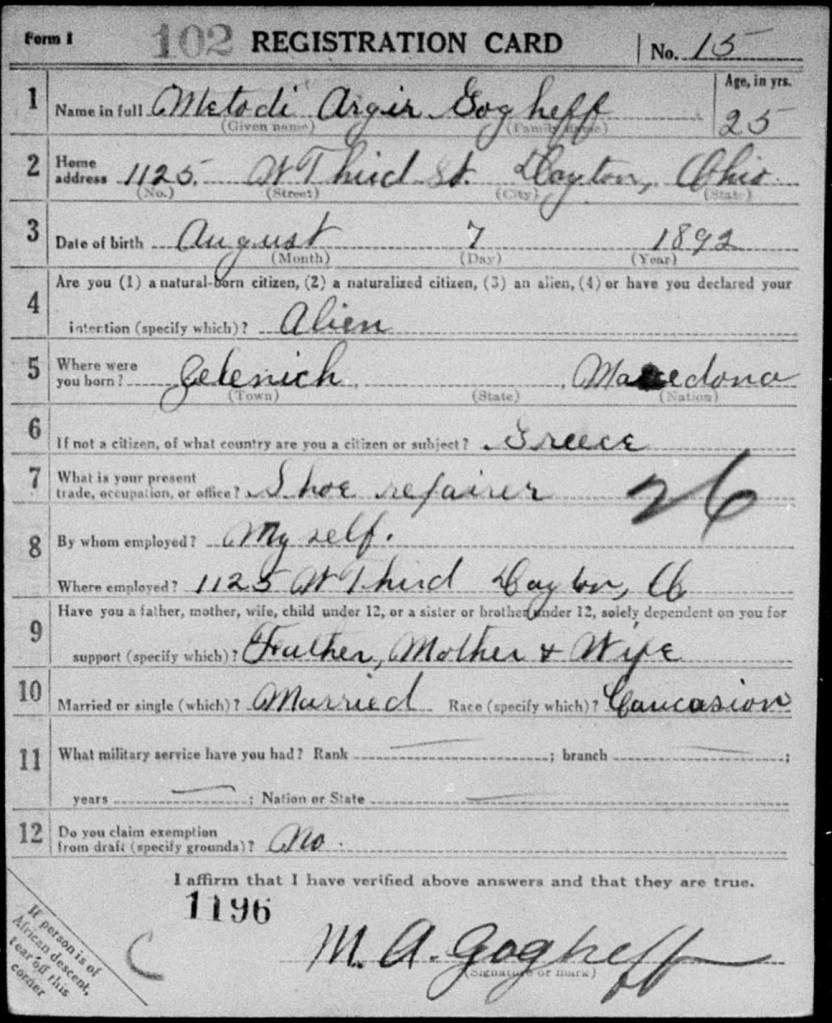 Form 1 102 REGISTRATION CARD No. 15
1 Name in full Metodi Argir Gogheff Age, in yrs. 25
(Given name) (Family name)
2 Home address 1125 W Third St. Dayton, Ohio
(No.) (Street) (City) (State)
3 Date of birth August 7 1892
(Month) (Day) (Year)
4 Are you (1) a natural-born citizen, (2) a naturalized citizen, (3) an alien, (4) or have you declared your
intention (specify which)? Alien
5 Where were you born? Gelenich Macedona
(Town) (State) (Nation)
6 If not a citizen, of what country are you a citizen or subject? Greece
7 What is your present trade, occupation, or office? Shoe repairer 26
8 By whom employed? My self.
Where employed? 1125 W Third Dayton, O
9 Have you a father, mother, wife, child under 12, or a sister or brother under 12, solely dependent on you for
support (specify which)? Father, Mother & Wife
10 Married or single (which)? Married Race (specify which)? Caucasion
11 What military service have you had? Rank — ; branch — ;
years — ; Nation or State —
12 Do you claim exemption from draft (specify grounds)? No.
I affirm that I have verified above answers and that they are true.
1196
M. A. Gogheff
(Signature or mark)
If person is of
African descent,
tear off this
corner